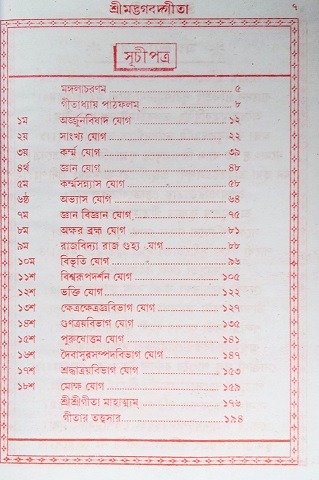 শ্রীমদ্ভগবদ্গীতা ৭
সূচীপত্র
মঙ্গলাচরণম ৫
গীতাধ্যায় পাঠফলম্ ৮
১ম অর্জ্জুনবিষাদ যোগ ১২
২য় সাংখ্য যোগ ২২
৩য় কর্ম্ম যোগ ৩৯
৪র্থ জ্ঞান যোগ ৪৮
৫ম কর্ম্মসন্ন্যাস যোগ ৫৮
৬ষ্ঠ অভ্যাস যোগ ৬৪
৭ম জ্ঞান বিজ্ঞান যোগ ৭৫
৮ম অক্ষর ব্রহ্ম যোগ ৮১
৯ম রাজবিদ্যা রাজ গুহ্য যোগ ৮৮
১০ম বিভূতি যোগ ৯৬
১১শ বিশ্বরূপদর্শন যোগ ১০৫
১২শ ভক্তি যোগ ১২২
১৩শ ক্ষেত্রক্ষেত্রজ্ঞবিভাগ যোগ ১২৭
১৪শ গুণত্রয়বিভাগ যোগ ১৩৫
১৫শ পুরুষোত্তম যোগ ১৪১
১৬শ দৈবাসুরসম্পদবিভাগ যোগ ১৪৭
১৭শ শ্রদ্ধাত্রয়বিভাগ যোগ ১৫৩
১৮শ মোক্ষ যোগ ১৫৯
শ্রীশ্রীগীতা মাহাত্ম্যম্ ১৭৬
গীতার তত্ত্বসার ১৯৪